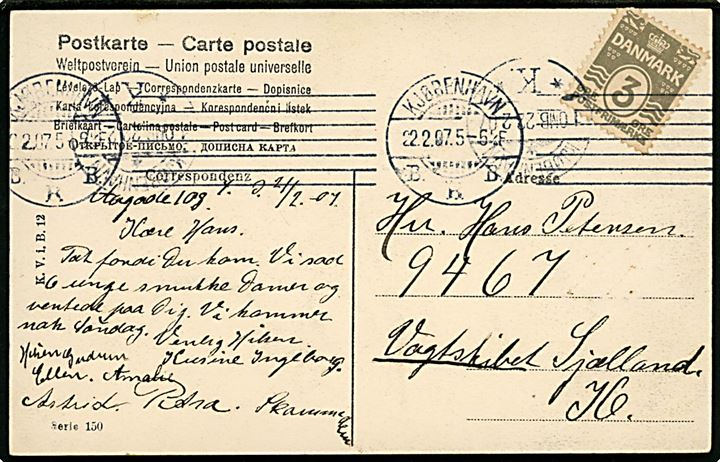 Postkarte — Carte postale
Weltpostverein — Union postale universelle
Levelező-Lap — Correspondenzkarte — Dopisnice
Karta korespondencyjna — Korespondenční listek
Briefkaart — Cartolina postale — Post card — Brefkort
Открытое письмо. дописна карта
Correspondenz
Adresse
KJØBENHAVN
22.2.07. 5-6 E
B. K B.
DANMARK
3
22.2.07. 5-
K
B.
21/2 - 07.
Kære Hans.
Tak fordi Du kom. Vi sad
6 unge smukke Damer og
ventede paa Dig. Vi kommer
nok Søndag. Venlig Hilsen.
Ingeborg.
Ellen. Amalie
Astrid. Petra.
K. V. i. B. 12
Serie 150
Hr. Hans Petersen.
9467
Vagtskibet Sjælland.
K.